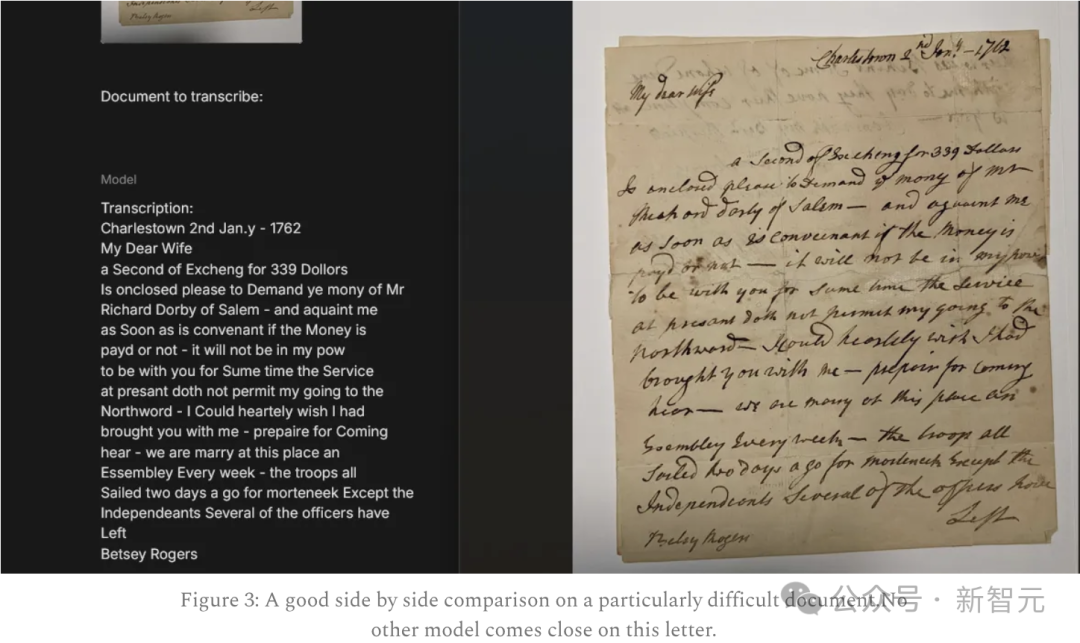 Document to transcribe:
Model
Transcription:
Charlestown 2nd Jan.y - 1762
My Dear Wife
a Second of Excheng for 339 Dollors
Is onclosed please to Demand ye mony of Mr
Richard Dorby of Salem - and aquaint me
as Soon as is convenant if the Money is
payd or not - it will not be in my pow
to be with you for Sume time the Service
at presant doth not permit my going to the
Northword - I Could heartely wish I had
brought you with me - prepaire for Coming
hear - we are marry at this place an
Essembley Every week - the troops all
Sailed two days a go for morteneek Except the
Independeants Several of the officers have
Left
Betsey Rogers
Charlestown 2nd Jan.y - 1762
My dear Wife
a Second of Excheng for 339 Dollors
Is enclosed please to Demand ye mony of Mr
darby of Salem — and aquaint me
as soon as is convenant if the Money is
payd or not — it will not be in my pow
to be with you for Sume time the Service
at presant doth not permit my going to the
Northward — I Could heartely wish I had
brought you with me — prepair for coming
hear — we are at this place an
Essembley Every week — the troop all
Sailed two days a go for morteneek Except the
Independants Several of the officers have
Left
Betsy Rogers
Figure 3: A good side by side comparison on a particularly difficult document.No
other model comes close on this letter.
公众号 · 新智元